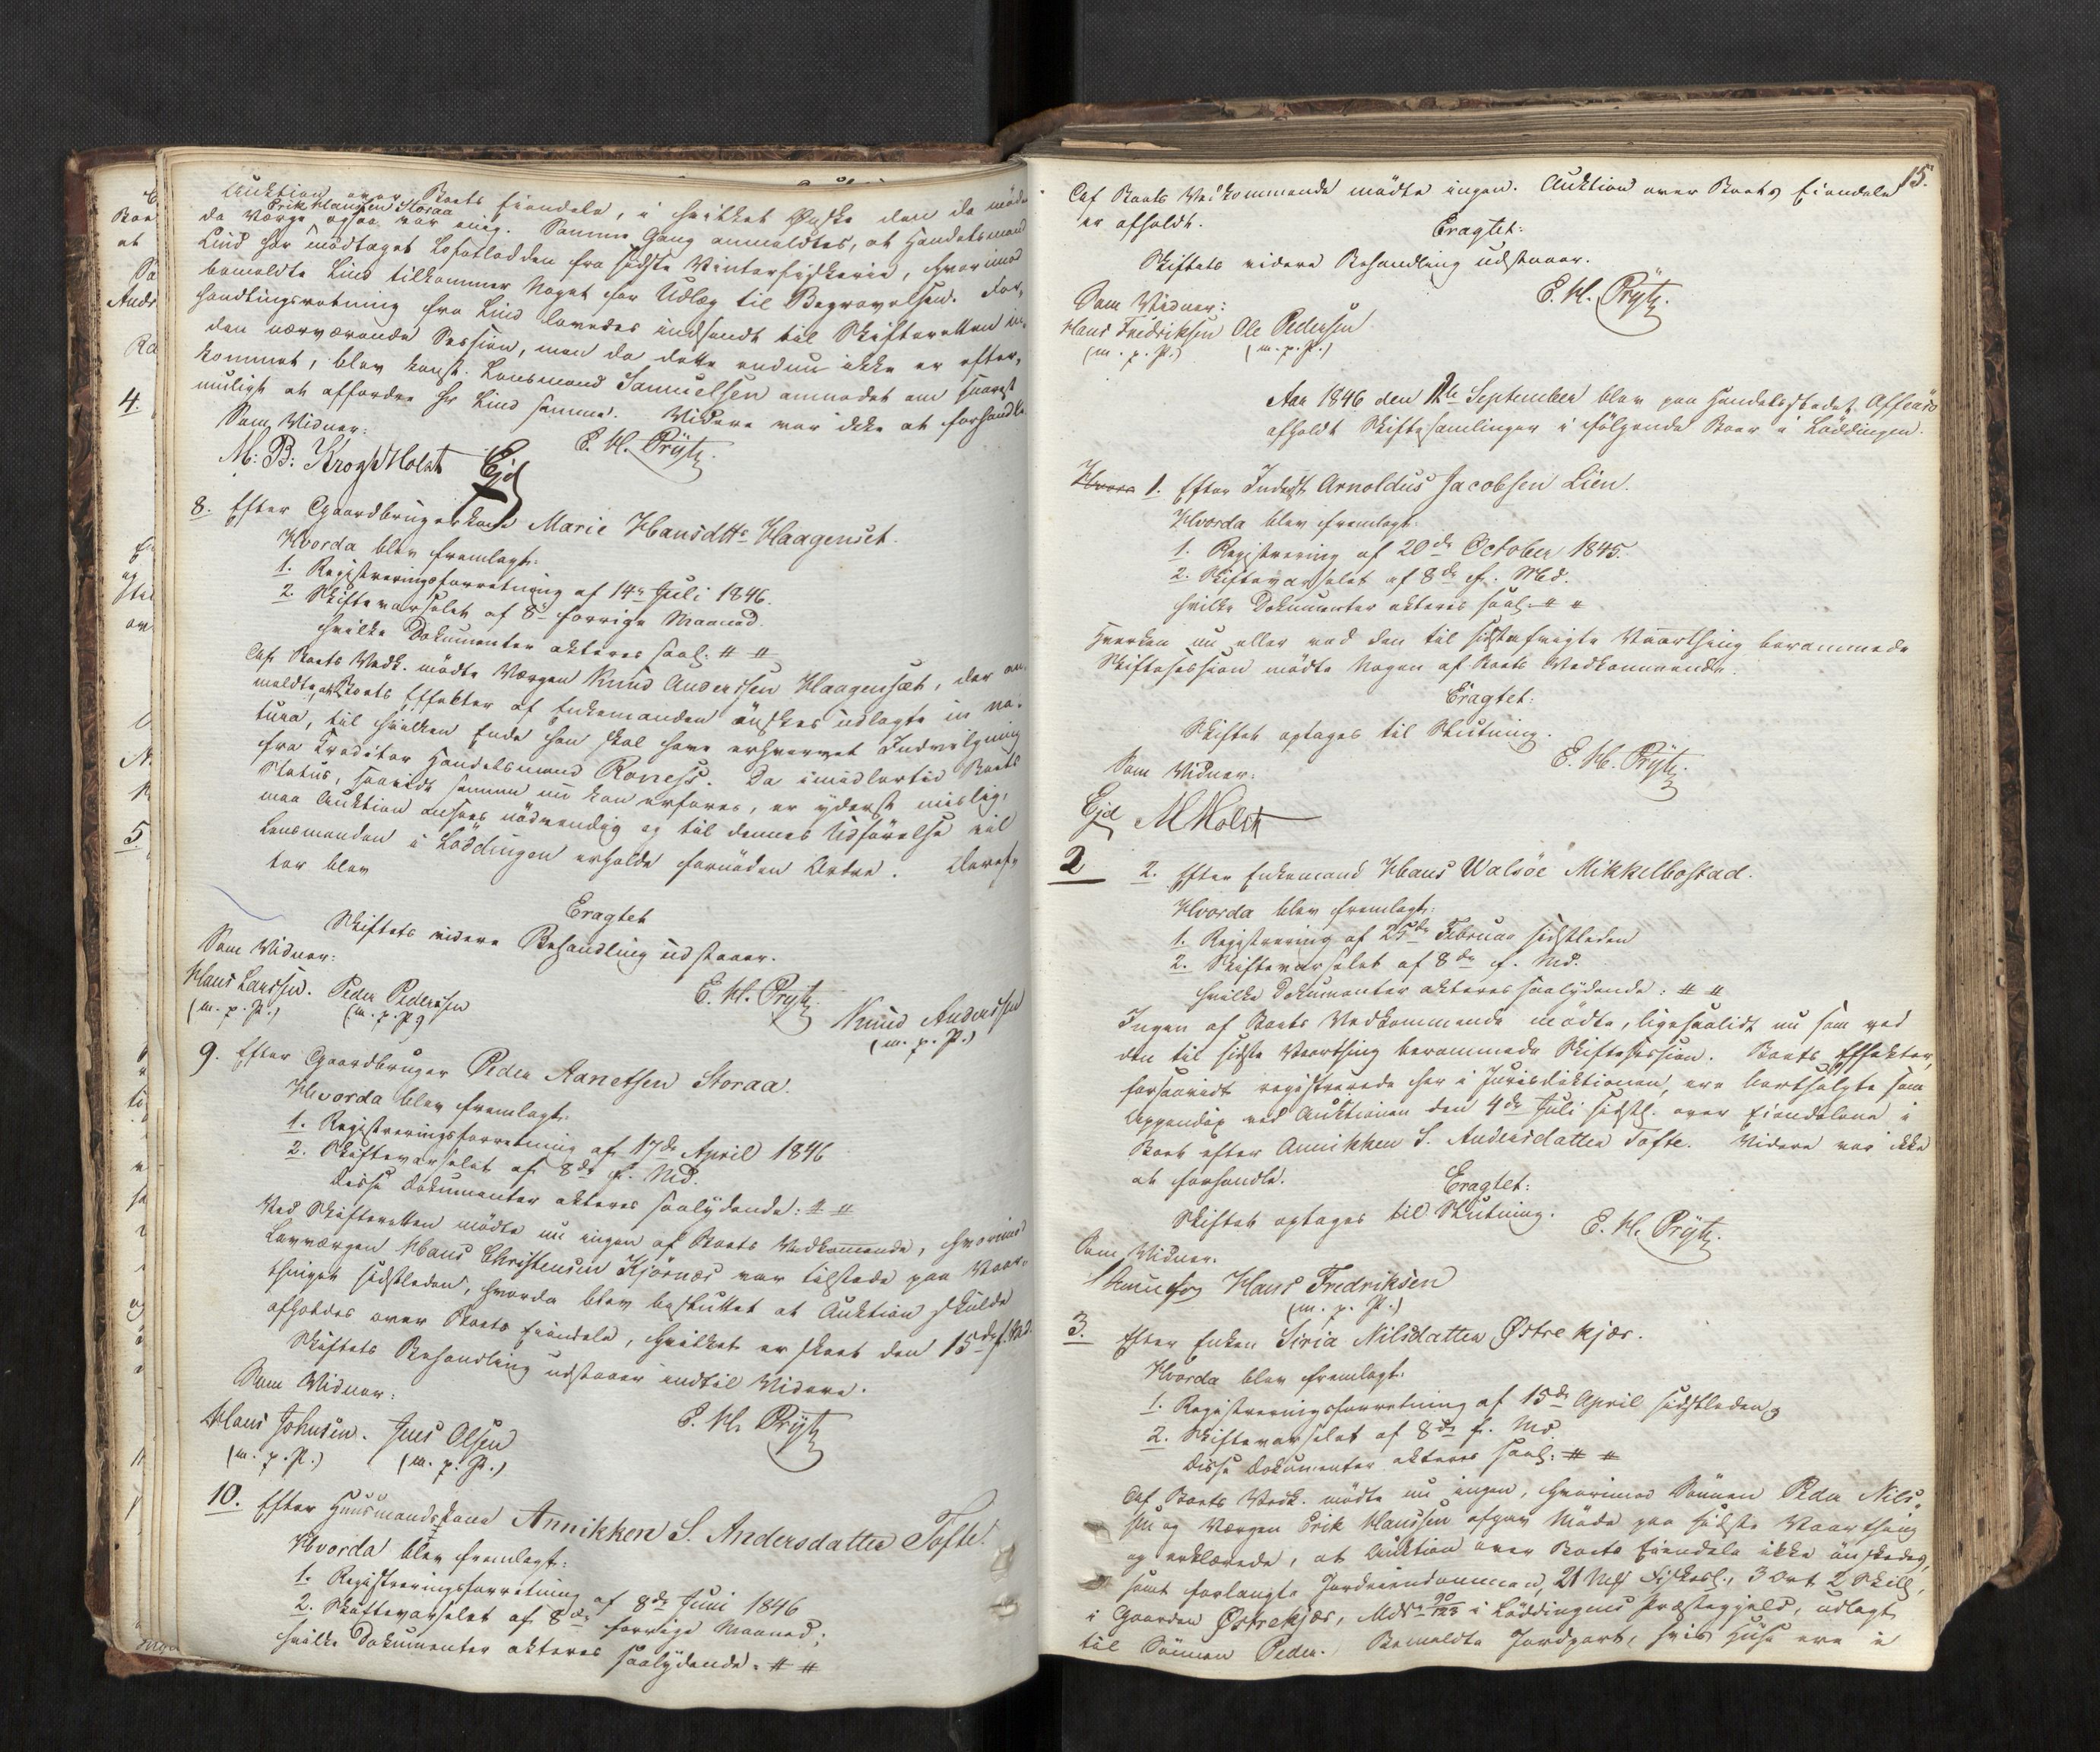 Auktion over Boets Eiendele, i hvilket Ønske den ile mødende
Erik Hanssen Storaa
de Værge ogsaa var enig. Samme Gang anmeldtes, at Handelsmand
Lind har modtaget Lofotlodden fra sidste Vinterfiskerie, hvorimod
bemeldte Lind tilkommer Noget for Udlæg til Begravelsen. For,
handlingsretning fra Lind lovedes indsendt til Skifteretten in,
den nærværende Session, men da dette endnu ikke er efter,
kommet, blev const. Lensmand Samuelsen anmodet om snarest
muligt at affordre Hr Lind samme. Videre var ikke at forhandle
Som Vidner:
E. H. Prÿtz.
M: B: Krogh Holst Ejd
8. Efter Gaardbrugerkone Marie Hansdttr Haagenset.
Hvorda blev fremlagt:
1. Registreringsforretning af 14de Juli 1846.
2. Skiftevarselet af 8de forrige Maaned.
hvilke Dokumenter akteres saal: # #
Af Boets Vedk. mødte Værgen Knud Anderssen Haagenset, der an,
meldte, at Boets Effekter af Enkemanden ønskes udlagte in na,
tura, til hvilken Ende han skal have erhvervet Indvilgning
fra Creditor Handelsmand Roness. Da imidlertid Boets
Status, saavidt samme nu kan erfares, er yderst mislig,
maa Auktion ansees nødvendig og til dennes Udførelse vil
Lensmanden i Löddingen erholde fornøden Ordre. Deref,
ter blev
Eragtet
Skiftets videre Behandling udstaaer.
Som Vidner:
E. H. Prÿtz.
Hans Larssen. Peder Pederssen
(m. p. P.) (m. p. P.)
Knud Anderssen
(m. p. P.)
9. Efter Gaardbruger Peder Aanetsen Storaa.
Hvorda blev fremlagt:
1. Registreringsforretning af 17de April 1846
2. Skiftevarselet af 8de f. Md.
disse Dokumenter akteres saalydende: # #
Ved Skifteretten mødte nu ingen af Boets Vedkommende, hvorimod
Lavværgen Hans Christensen Kjörnæs var tilstede paa Vaar,
thinget sidstleden, hvorda blev besluttet at Auktion skulde
afholdes over Boets Eiendele, hvilket er skeet den 15de f. Md.
Skiftets Behandling udstaaer indtil Videre.
Som Vidner:
E. H. Prÿtz
Hans Johnsen. Jens Olsen
(m. p. P.) (m. p. P.)
10. Efter Huusmandskone Annikken S. Andersdatter Tofte.
Hvorda blev fremlagt:
1. Registreringsforretning af 8de Juni 1846
2. Skiftevarselet af 8de forrige Maaned;
hvilke Dokumenter akteres saalydende: # #
15.
Af Boets Vedkommende mødte ingen. Auktion over Boets Eiendele
er afholdt.
Eragtet:
Skiftets videre Behandling udstaaer.
E. H. Prÿtz.
Som Vidner:
Hans Fredriksen Ole Pedersen
(m. p. P.) (m. p. P.)
Aar 1846 den 12te September blev paa Handelsstedet Offersø
afholdt Skiftesamlinger i følgende Boer i Löddingen.
Hvora 1. Efter Inderst Arnoldus Jacobsen Lien.
Hvorda blev fremlagt:
1. Registrering af 20de October 1845.
2. Skiftevarselet af 8de f. Md.
hvilke Dokumenter akteres saal: # #
Hverken nu eller ved den til sidstafvigte Vaarthing berammede
Skiftesession mødte Nogen af Boets Vedkommende.
Eragtet:
Skiftet optages til Slutning.
E. H. Prÿtz.
Som Vidner:
Ejd M Holst
2 2. Efter Enkemand Hans Walsöe Mikkelbostad.
Hvorda blev fremlagt:
1. Registrering af 25de Februar sidstleden
2. Skiftevarselet af 8de f. Md.
hvilke Dokumenter akteres saalydende: # #
Ingen af Boets Vedkommende mødte, ligesaalidt nu som ved
den til sidste Vaarthing berammede Skiftesession. Boets Effekter,
forsaavidt registrerede her i Jurisdiktionen, ere bortsolgte som
Appendix ved Auktionen den 4de Juli sidstl. over Eiendelene i
Boet efter Annikken S. Andersdatter Tofte. Videre var ikke
at forhandle.
Eragtet:
Skiftet optages til Slutning.
E. H. Prÿtz.
Som Vidner.
Hans Fredriksen
(m. p. P.)
3. Efter Enken Siria Nilsdatter Østrekjær.
Hvorda blev fremlagt:
1. Registreringsforretning af 15de April sidstleden,
2. Skiftevarselet af 8de f. Md.
disse Dokumenter akteres saal: # #
Af Boets Vedk. mødte nu ingen, hvorimod Sønnen Peder Nils,
sen og Værgen Erik Hanssen afgav Møde paa sidste Vaarthing
og erklærede, at Auktion over Boets Eiendele ikke ønskedes,
samt forlangte Jordeiendommen, 21 Mk Fiskesl., 3 Ort 2 Skill,
i Gaarden Østrekjær, Mdr 90/123 i Löddingens Præstegjeld, udlagt
til Sønnen Peder. Bemeldte Jordpart, hvis Huse ere i